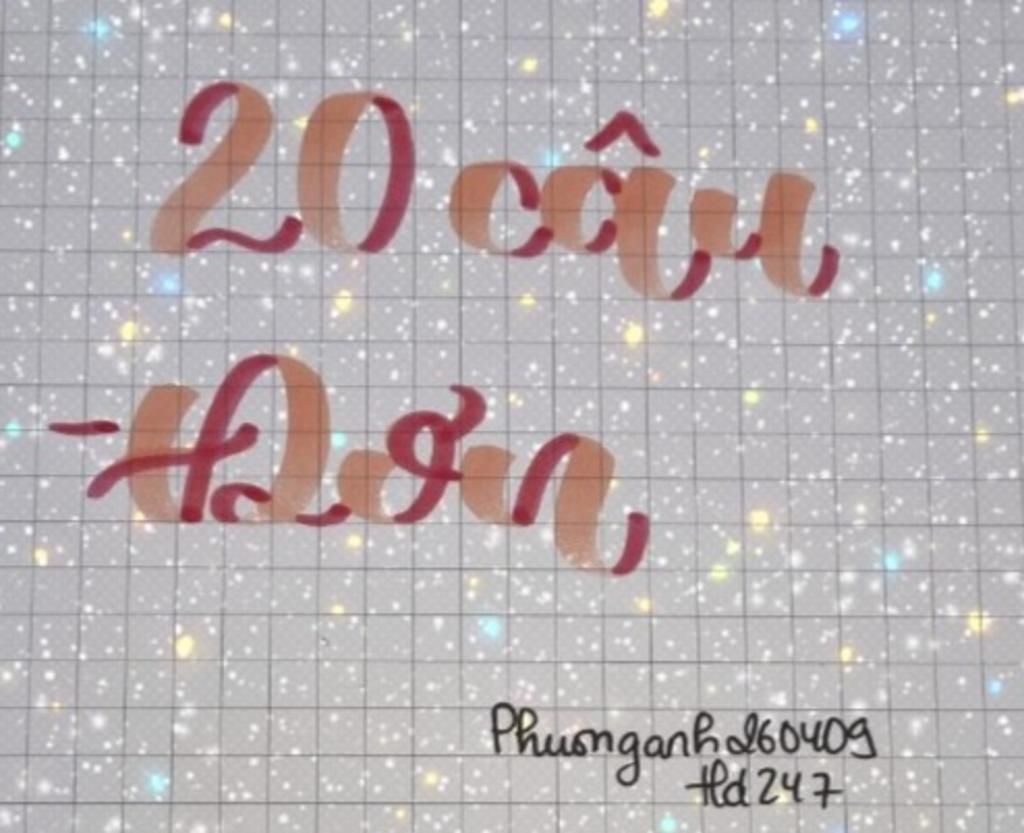 20 câu
Đơn
Phuonganh260409
Hd247